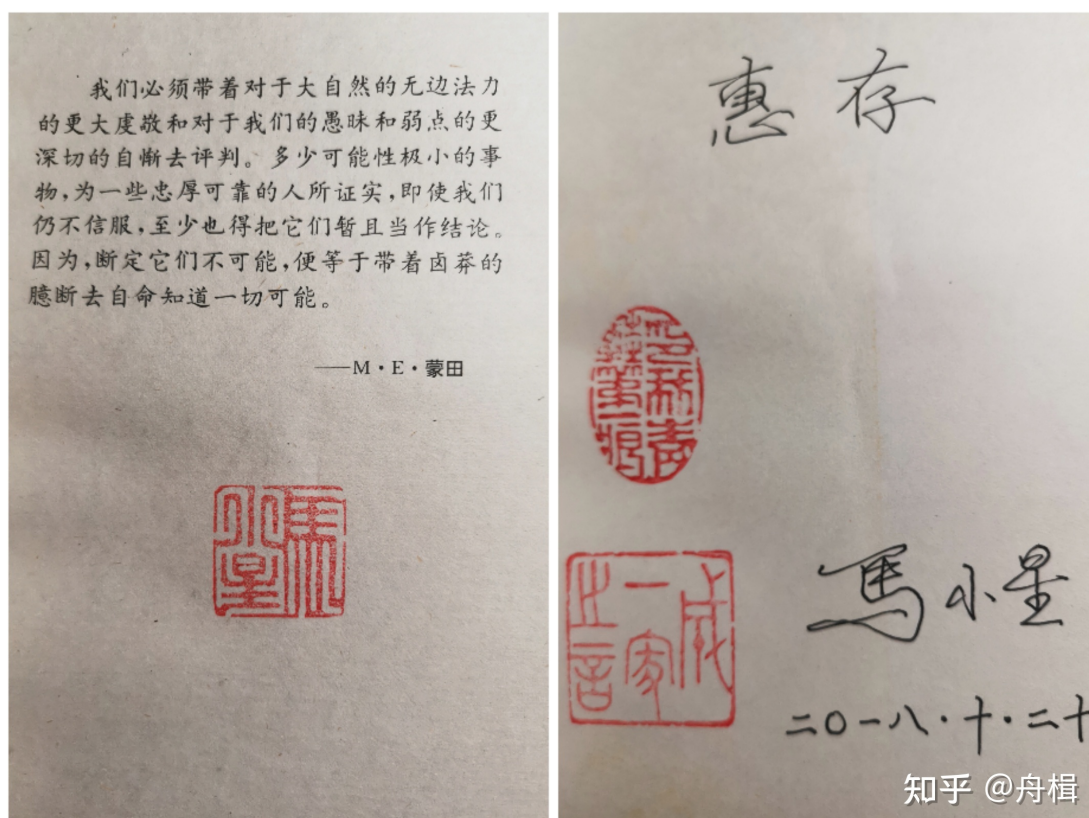 我们必须带着对于大自然的无边法力
的更大虔敬和对于我们的愚昧和弱点的更
深切的自惭去评判。多少可能性极小的事
物,为一些忠厚可靠的人所证实,即使我们
仍不信服,至少也得把它们暂且当作结论。
因为,断定它们不可能,便等于带着卤莽的
臆断去自命知道一切可能。
——M·E·蒙田
馬小星
惠存
成一家之言
馬小星
二〇一八·十·二十
知乎 @舟楫